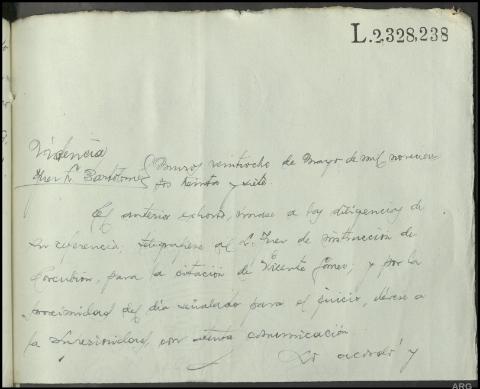 L.2,328,238
Providencia
Juez Sr. Bartolomé
Muros veintiocho de Mayo de mil novecien
tos treinta y siete.
El anterior exhorto, únase a las diligencias de
su referencia; telegrafiese al Sr. Juez de instrucción de
Corcubión, para la citación de Vicente Gómez; y por la
proximidad del día señalado para el juicio, dése a
la Superioridad con atenta comunicación
Lo acordó y
ARG